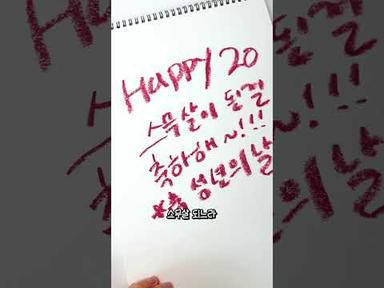 Happy 20
스무살이 된걸
축하해~!!!
성년의날
스무살 되느라